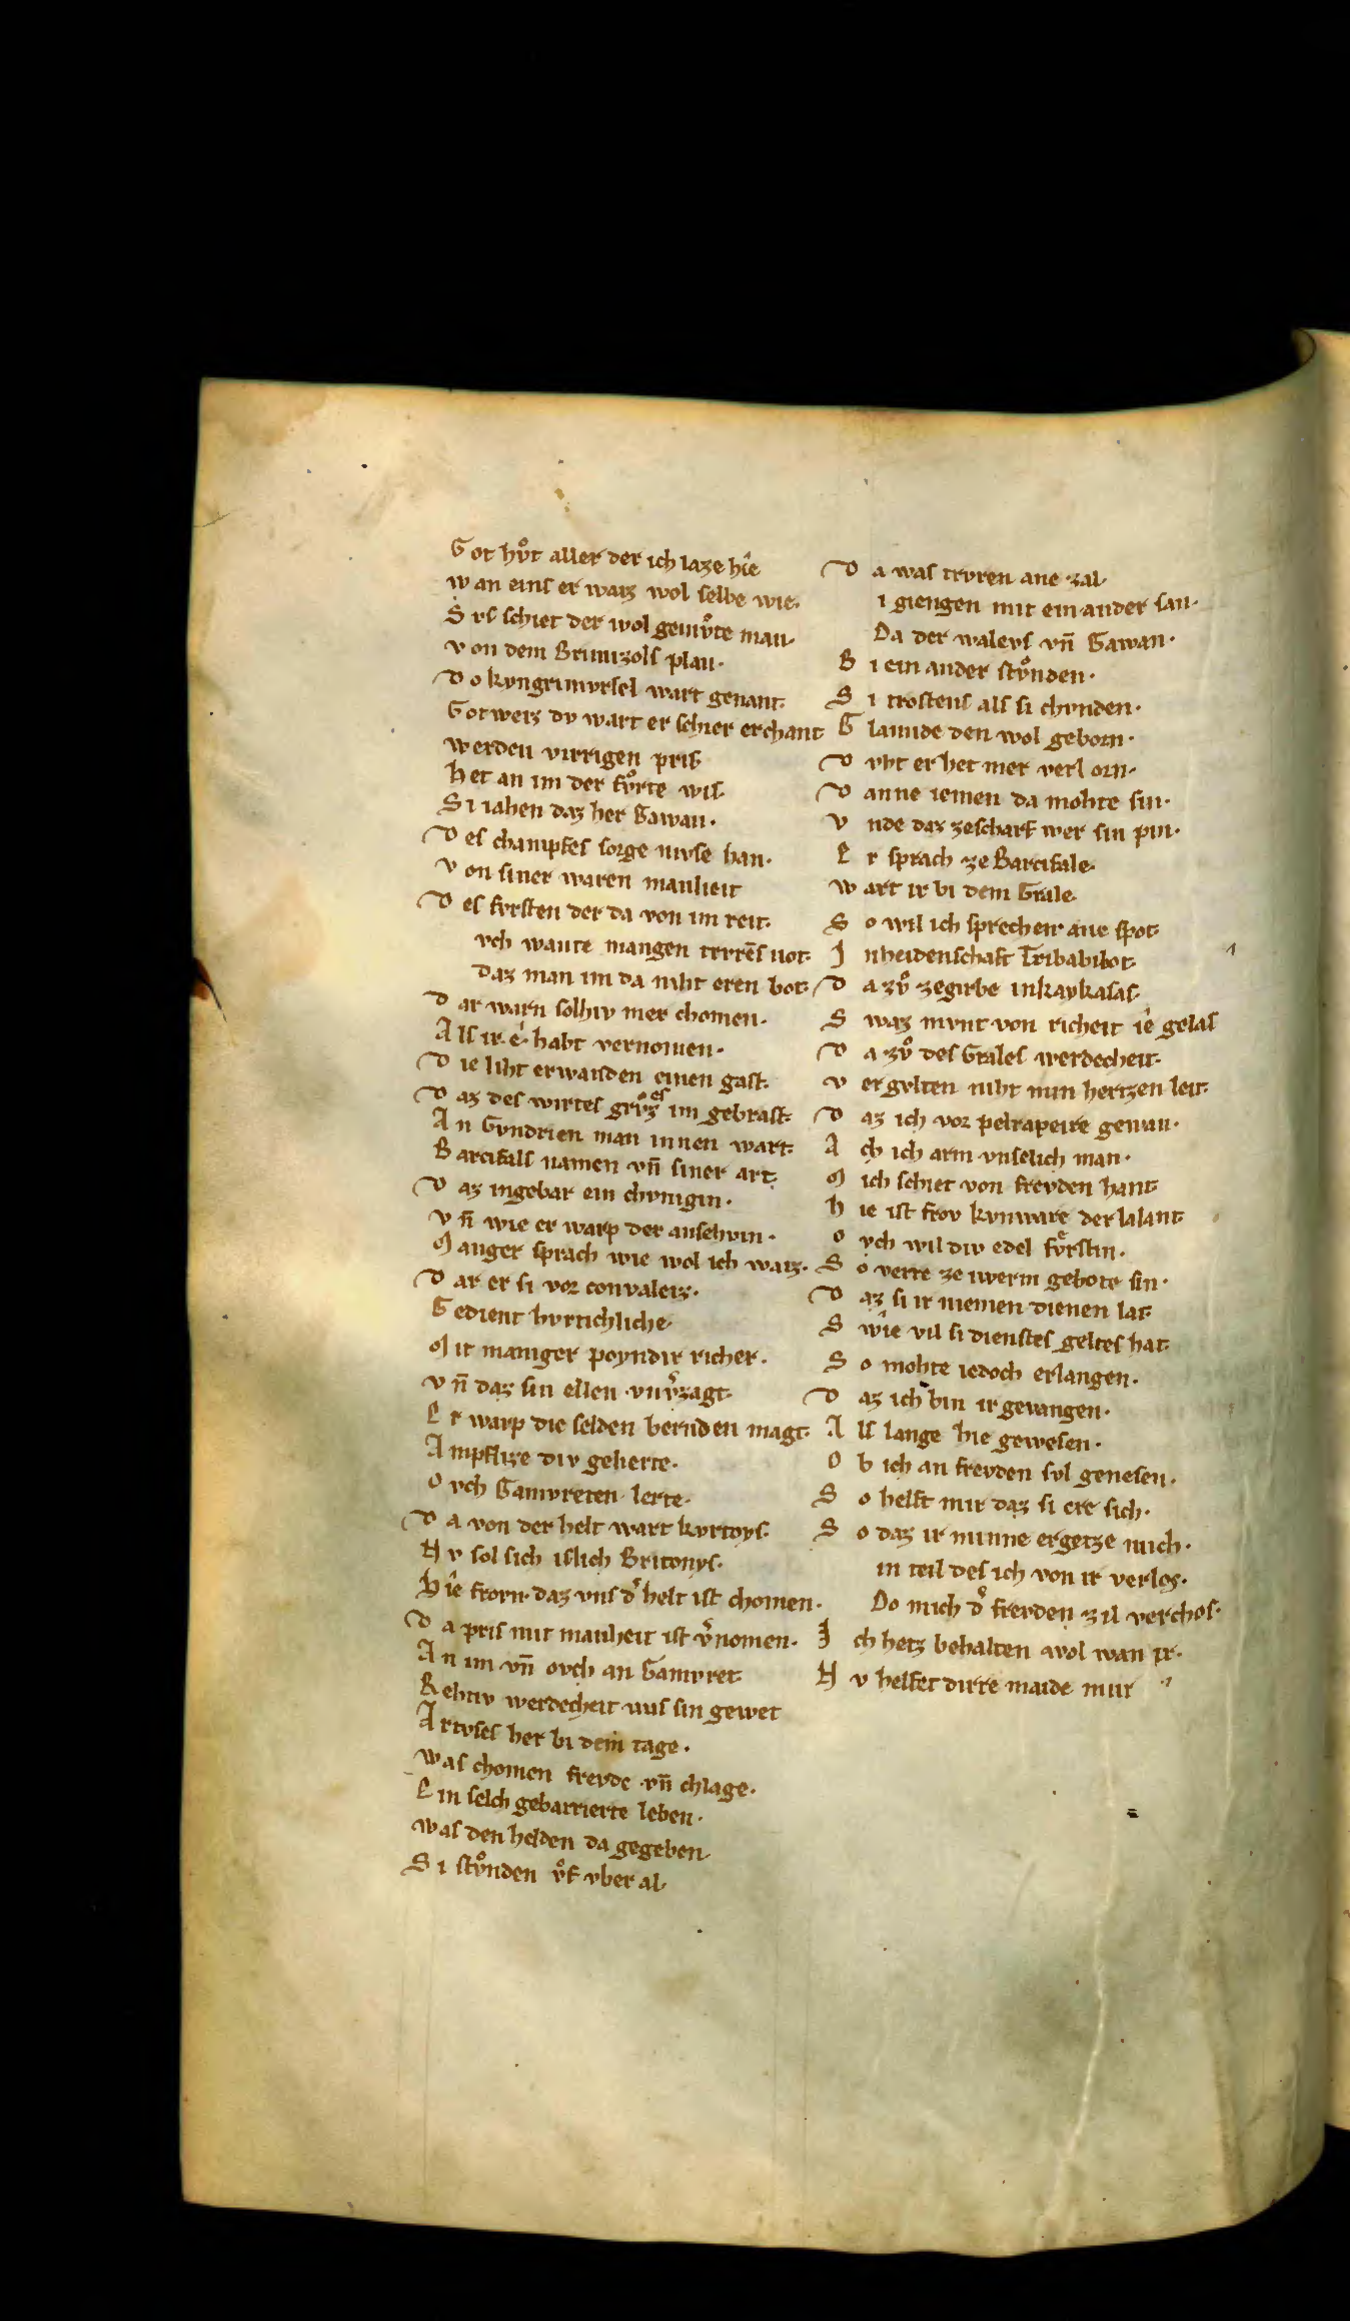 Got hvͦt aller der ich laze hîe
wan eins er waiz wol selbe wie.
Svs schiet der wol gemvͦte man.
von dem Brimizols plan.
Do kyngrimvrsel wart genant.
Gotweiz dv wart er schier erchant
werden virrigen pris
Het an im der fvͦrte wis.
Si iahen daz her Gawan.
Des champfes sorge mvse han.
Von siner waren manheit
Des fvrsten der da von im reit.
vch wante mangen trvrēs not.
daz man im da niht eren bot.
Dar warn solhiv mer chomen.
Als ir. ê. habt vernomen.
Die liht erwanden einen gast.
Daz des wirtes grvͦzes im gebrast.
An Gvndrien man innen wart.
Barcifals namen vn̄ siner art.
Daz ingebar ein chvnigin.
vn̄ wie er warp der anschvin.
Manger sprach wie wol ich waiz.
Dar er si vor convaleiz.
Gedient hvrtichliche.
Mit maniger poyndir richer.
vn̄ daz sin ellen vnv͛zagt.
Er warp die selden bernden magt.
Ampflize div geherte.
Ovch Gamvreten lerte.
Da von der helt wart kvrtoys.
Nv sol sich islich Britonys.
Hîe frorn. daz vns d͛ helt ist chomen.
Da pris mit manheit ist v͛nomen.
An im vn̄ ovch an Gamvret
Rehtiv werdecheit uus sin gewet
Artvses her bi dem tage.
was chomen frevde vn̄ chlage.
Ein selch gebarrierte leben.
was den helden da gegeben.
Si stvͦnden vͦf vber al.
Da was trvren ane zal.
i giengen mit ein ander san.
Da der walevs vn̄ Gawan.
Bi ein ander stvͦnden.
Si trostens als si chvnden.
Glamide den wol geborn.
Dvht er het mer verl orn.
Danne iemen da mohte sin.
Vnde daz zescharf wer sin pin.
Er sprach ze Barcifale.
wart ir bi dem Grale.
So wil ich sprechenn ane spot.
Jn heidenschaft Tribabibot.
Da zvͦ zegirbe inkaykasas.
Swaz mvnt von richeit îe gelas
Da zvͦ des Grales werdecheit.
vergvlten niht min hertzen leit.
Daz ich vor pelrapeire gewan.
Ach ich arm vnselich man.
Mich schiet von frevden hant.
Hie ist frov kvnware der lalant.
ovch wil div edel fvͤrstin.
So verre ze iwerm gebote sin.
Daz si ir niemen dienen lat.
Swîe vil si dienstes geltes hat.
So mohte iedoch erlangen.
Daz ich bin ir gevangen.
Als lange hie gewesen.
Ob ich an frevden svl genesen.
So helft mir daz si ere sich.
So daz ir minne ergetze mich.
in teil des ich von ir verlos.
Do mich d͛ frevden zil verchos.
Ich hetz behalten wol wan ir.
Nv helfet dirre maide mir